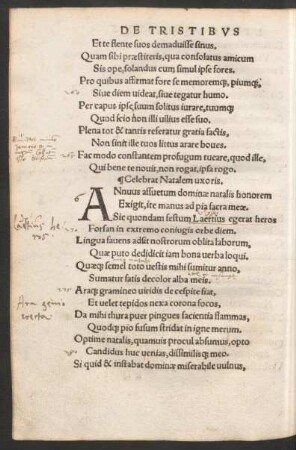 DE TRISTIBVS
Et te flente suos demaduisse sinus.
Quam sibi præstiteris, qua consolatus amicum
Sis ope, solandus cum simul ipse fores.
Pro quibus affirmat fore se memoremq; piumq;
Siue diem uideat, siue tegatur humo.
Per caput ipse suum solitus iurare, tuumq;
Quod scio non illi uilius esse suo.
Plena tot & tantis referatur gratia factis,
Non sinit ille tuos litus arare boues.
Fac modo constantem profugum tueare, quod ille,
Qui bene te nouit, non rogat, ipsa rogo.
¶Celebrat Natalem uxoris.
ANnuus assuetum dominæ natalis honorem
Exigit, ite manus ad pia sacra meæ.
Sic quondam festum Laertius egerat heros
Forsan in extremo coniugis orbe diem.
Lingua fauens adsit nostrorum oblita laborum,
Quæ puto dedidicit iam bona uerba loqui.
Quæq; semel toto uestis mihi sumitur anno,
Sumatur fatis decolor alba meis.
Araq; gramineo uiridis de cespite fiat,
Et uelet tepidos nexa corona focos,
Da mihi thura puer pingues facientia flammas,
Quodq; pio fusum stridat in igne merum.
Optime natalis, quamuis procul absumus, opto
Candidus huc uenias, dissimilisq; meo.
Si quid & instabat dominæ miserabile uulnus,